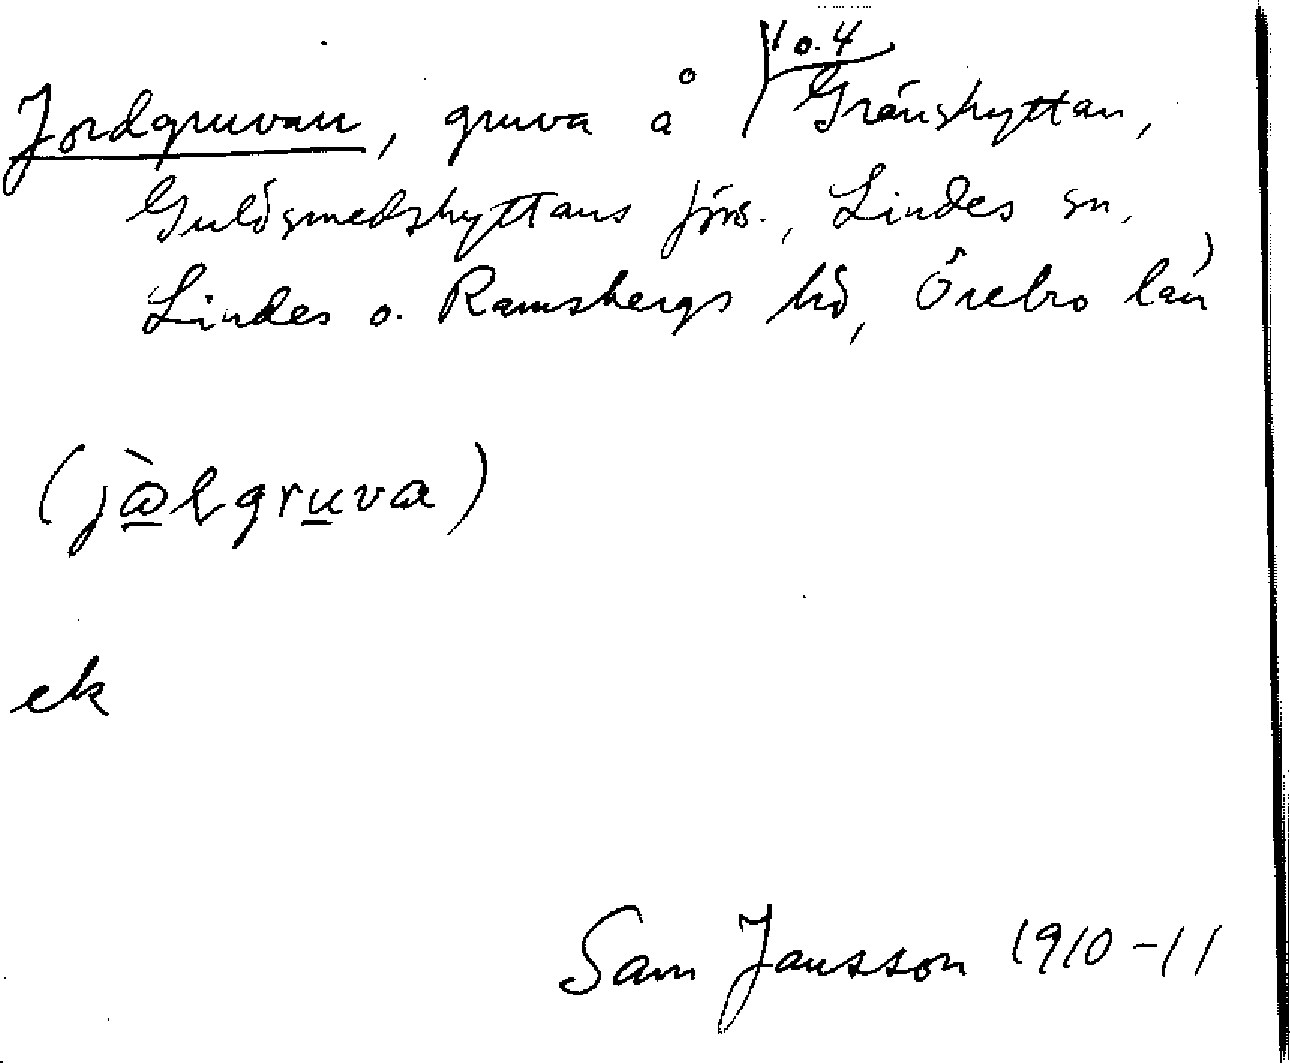 Jordgruvan, gruva å 1 o. 4 Gränshyttan,
Guldsmedshyttans förs., Lindes sn,
Lindes o. Ramsbergs hd, Örebro län
ek
Sam Jansson 1910-11